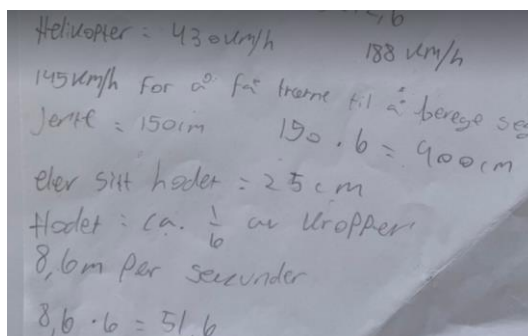 Helikopter = 430 km/h
188 km/h
145 km/h for å få trærne til å berege seg
Jente = 150cm
150 · 6 = 900cm
eler sitt hodet = 25cm
Hodet = ca. 1/6 av kroppen
8,6m per sekunder
8,6 · 6 = 51,6